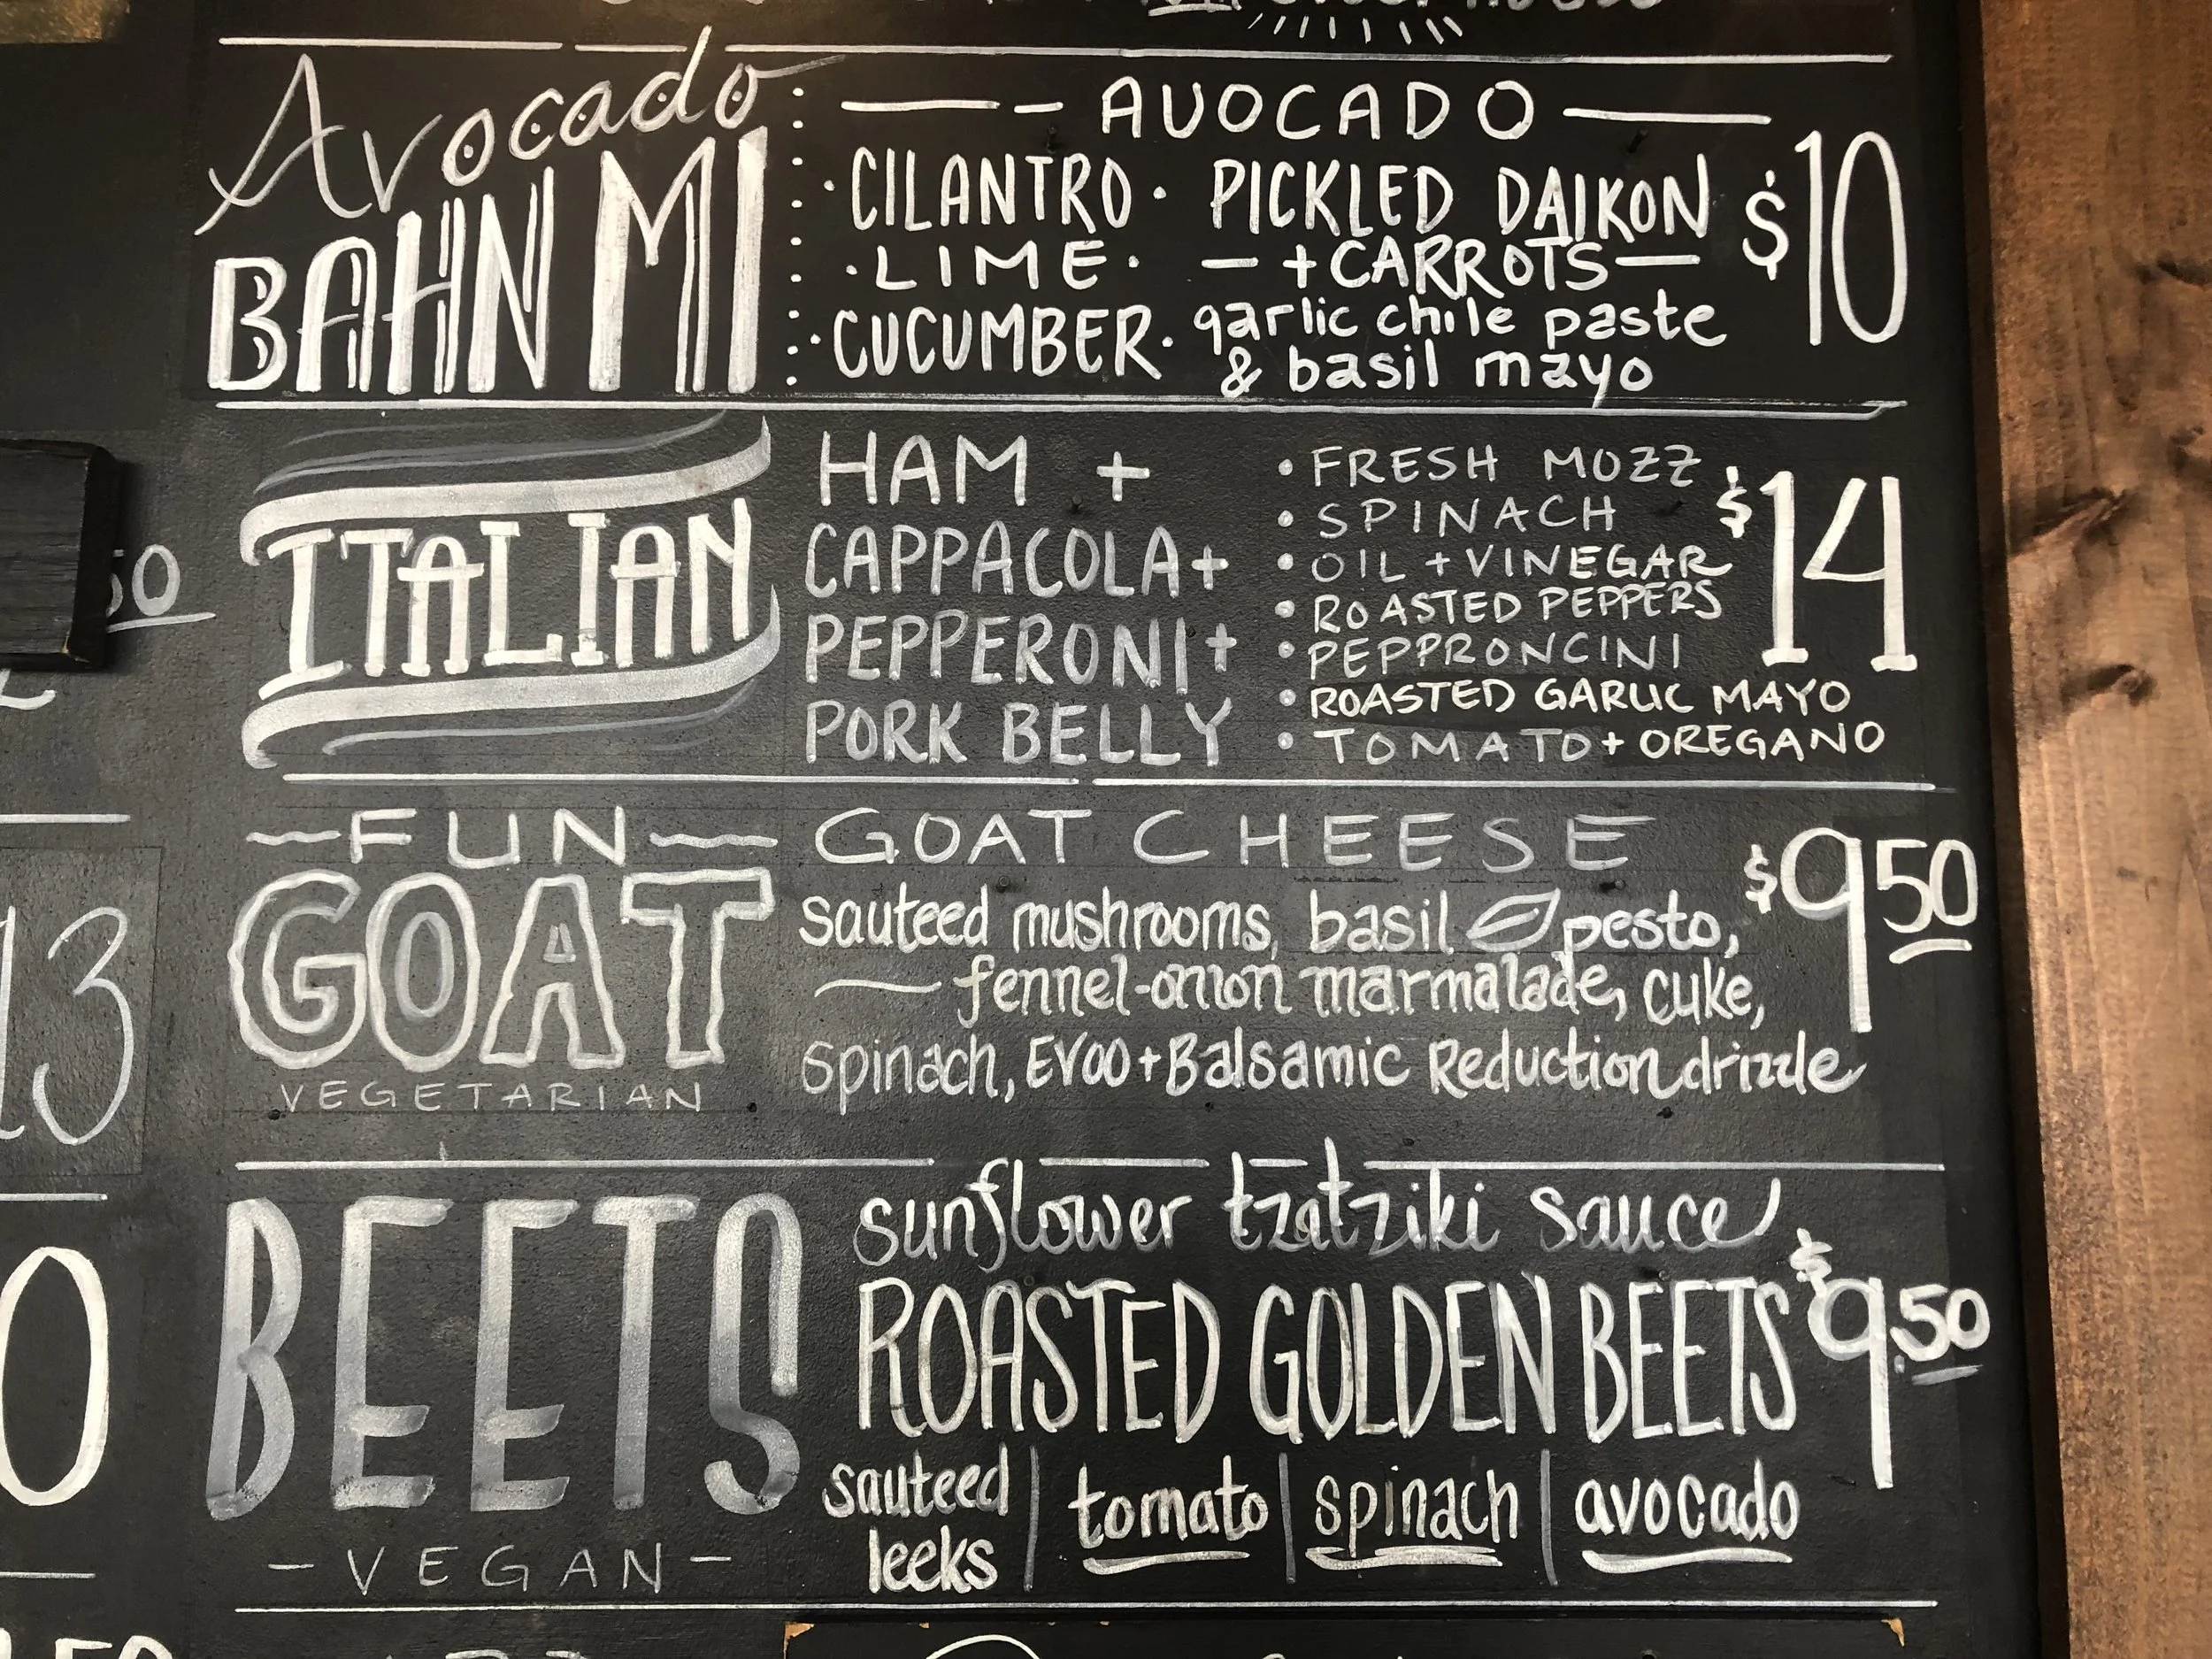 Avocado
BAHN MI
AVOCADO
· CILANTRO · PICKLED DAIKON
· LIME · — + CARROTS —
· CUCUMBER · garlic chile paste
& basil mayo
$10
ITALIAN
HAM +
CAPPACOLA +
PEPPERONI +
PORK BELLY
• FRESH MOZZ
• SPINACH
• OIL + VINEGAR
• ROASTED PEPPERS
• PEPPRONCINI
• ROASTED GARLIC MAYO
• TOMATO + OREGANO
$14
~FUN~
GOAT
VEGETARIAN
GOAT CHEESE
sauteed mushrooms, basil pesto,
fennel-onion marmalade, cuke,
spinach, EVOO + Balsamic Reduction drizzle
$9 50
BEETS
- VEGAN -
sunflower tzatziki sauce
ROASTED GOLDEN BEETS
sauteed leeks | tomato | spinach | avocado
$9.50
50
13
0